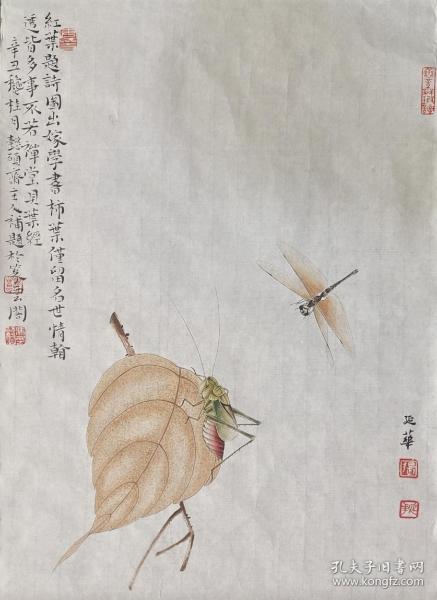 紅葉題詩圖出嫁學書柿葉僅留名世情翰
透皆多事不若禪堂貝葉經
辛丑穐桂月懿頭齋主人補題於
閣
延華
孔夫子旧书网
www.kongfz.com